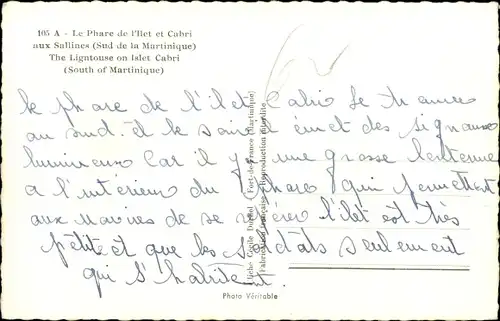 105 A - Le Phare de l'Ilet et Cabri
aux Sallines (Sud de la Martinique)
The Ligntouse on Islet Cabri
(South of Martinique)
le phare de l'ilet Cabri se trouve
au sud. et le soir il émet des signaux
lumineux Car il y a une grosse lanterne
a l'intérieur du phare qui permettent
aux navires de se repérer l'ilet est très
petite et que les soldats seulement
qui s'habitent.
Cliché Cécile Fort-de-France (Martinique)
Fabrication française - Reproduction interdite
Photo Véritable